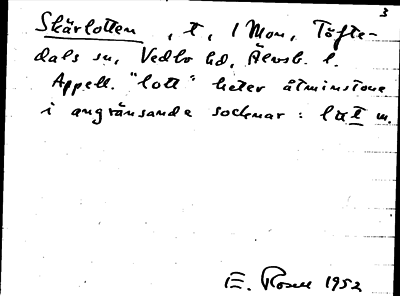 3
Skärlotten, t, 1 Mon, Töfte-
dals sn, Vedbo hd, Älvsb. l.
Appell. "lott" heter åtminstone
i angränsande socknar: lɑt m.
E. Rosell 1952